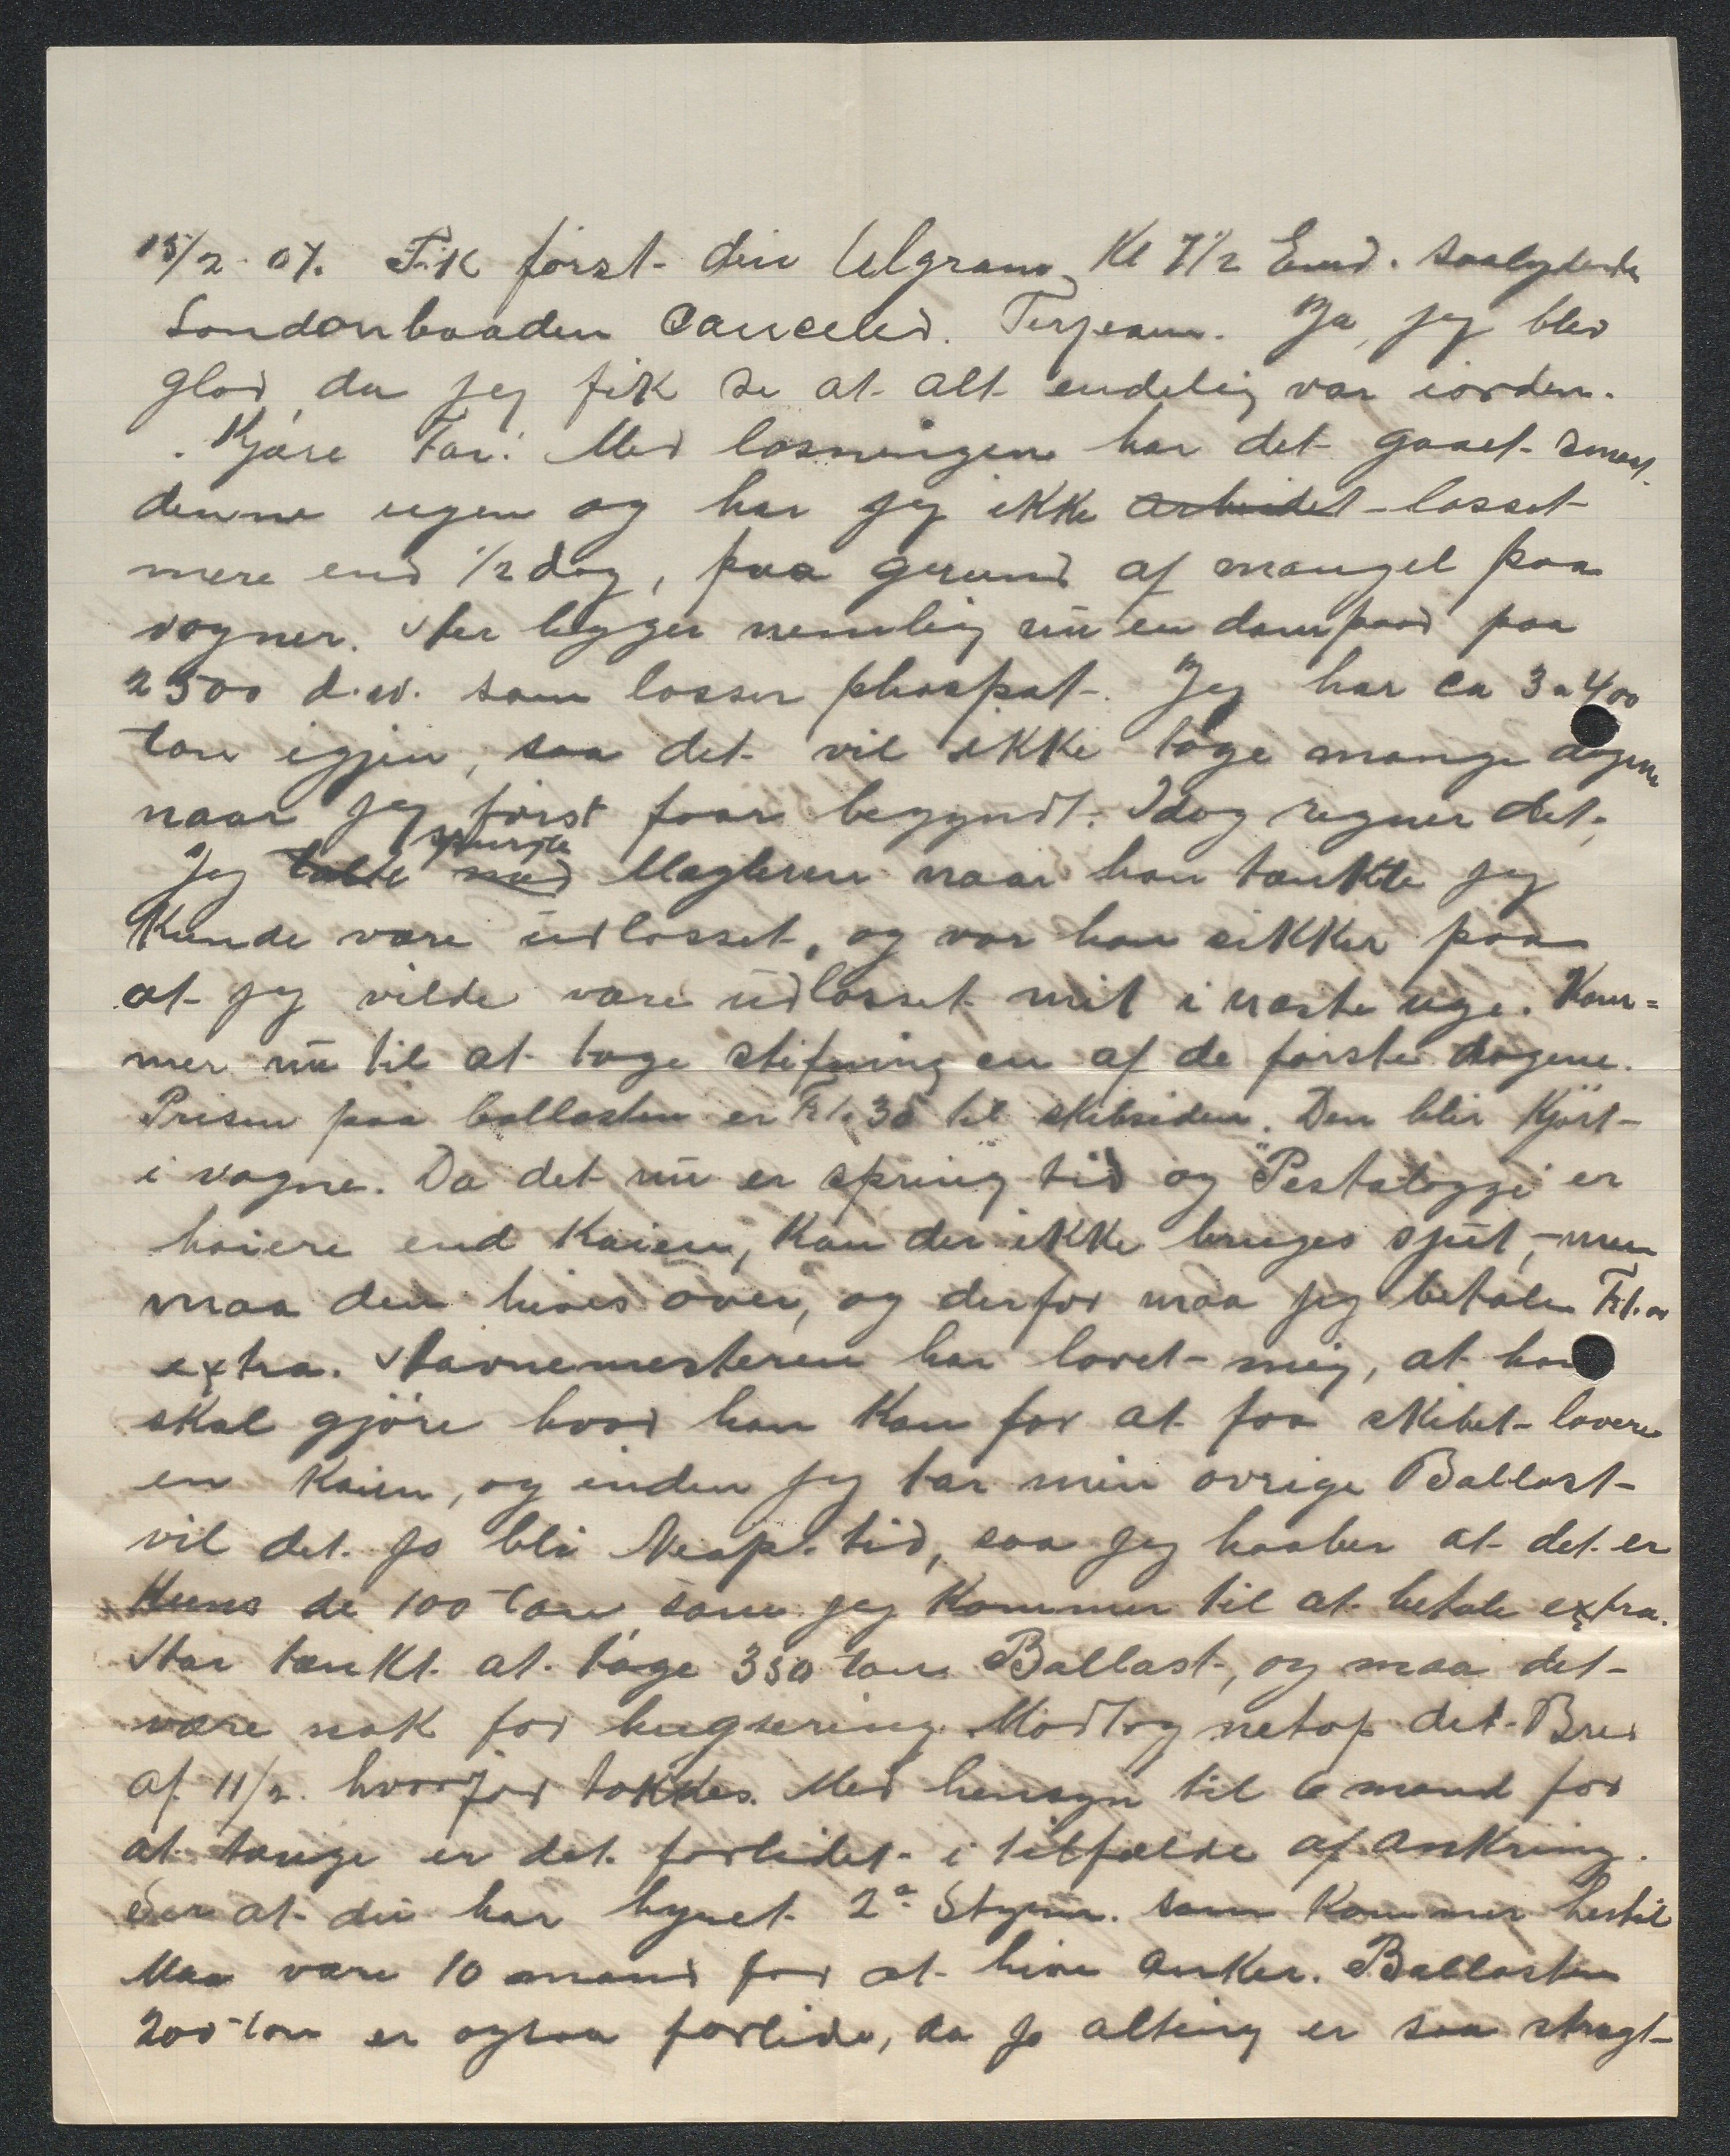 15/2 07. Fik først din telgram Kl 7 1/2 Emd. saalydende
Londonbaaden Canceled. Terjesen. Ja, jeg blev
glad, da jeg fik se at alt endelig var iorden.
Kjære Far! Med losningen har det gaaet smaat
denne ugen og har jeg ikke arbeidet losset
mere end 1/2 dag, paa grund af mangel paa
vogner. Her ligger nemlig nu en dampbaad paa
2500 d.w. som losser phospat. Jeg har ca 3 a 400
ton igjen, saa det vil ikke tage mange dagene
naar jeg først faar begyndt. Idag regner det,
Jeg talte med spurgte Mægleren naar han tænkte jeg
Kunde være udlosset, og var han sikker paa
at jeg vilde være udlosset mit i næste uge. Kom=
mer nu til at tage stifning en af de første dagene.
Prisen paa ballasten er Fr 1.35 til skibsiden. Den blir Kjørt
i vogne. Da det nu er spring tid og "Pestalozzi" er
høiere end Kaien, Kan der ikke bruges sjut, men
maa den hives over, og derfor maa jeg betale Fr 1.00
extra. Havnemesteren har lovet mig, at han
skal gjøre hvad han Kan for at faa skibet lavere
en Kaien, og inden jeg tar min øvrige Ballast
vil det jo bli Neap. tid, saa jeg haaber at det er
Kuns de 100 ton som jeg Kommer til at betale extra.
Har tænkt at tage 350 ton Ballast, og maa det
være nok for bugsering. Modtog netop dit Brev
af 11/2. hvorfor takkes. Med hensyn til 6 mand for
at bugse er det forlidet i tilfælde af Ankring.
Ser at du har hyret 2a Styrm. som Kommer hertil
Maa være 10 mand for at hive Anker. Ballasten
200 ton er ogsaa forlide, da jo alting er saa strngt